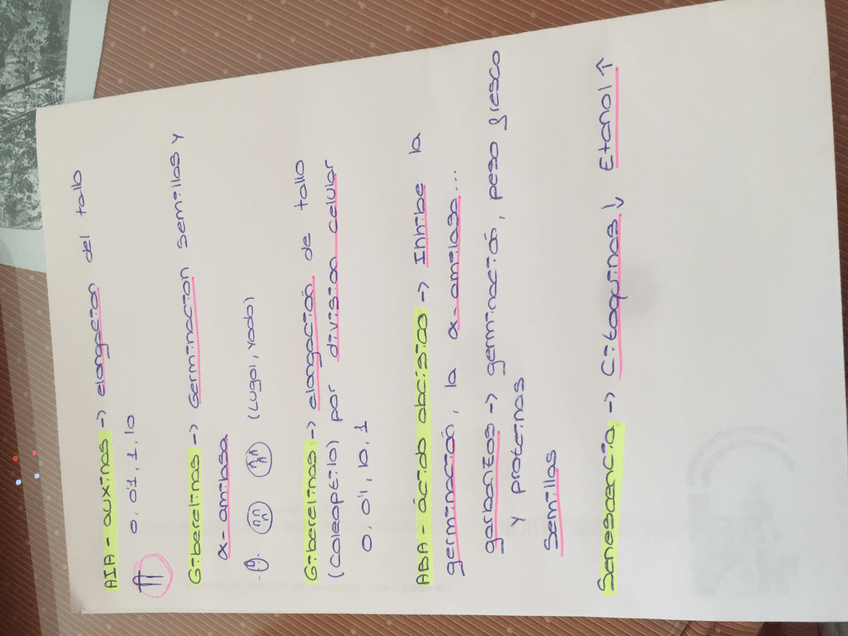 AIA - auxinas -> elongación del tallo
0, 0'1, 1, 10
Giberelinas -> Germinación semillas y
α-amilasa
(Lugol, yodo)
Giberelinas -> elongación de tallo
(coleoptilo) por división celular
0, 0'1, 10, 1
ABA - ácido abcísico -> Inhibe la
germinación, la α-amilasa...
garbanzos -> germinación, peso fresco
y proteínas
semillas
Senescencia -> Citoquinas ↓ Etanol ↑